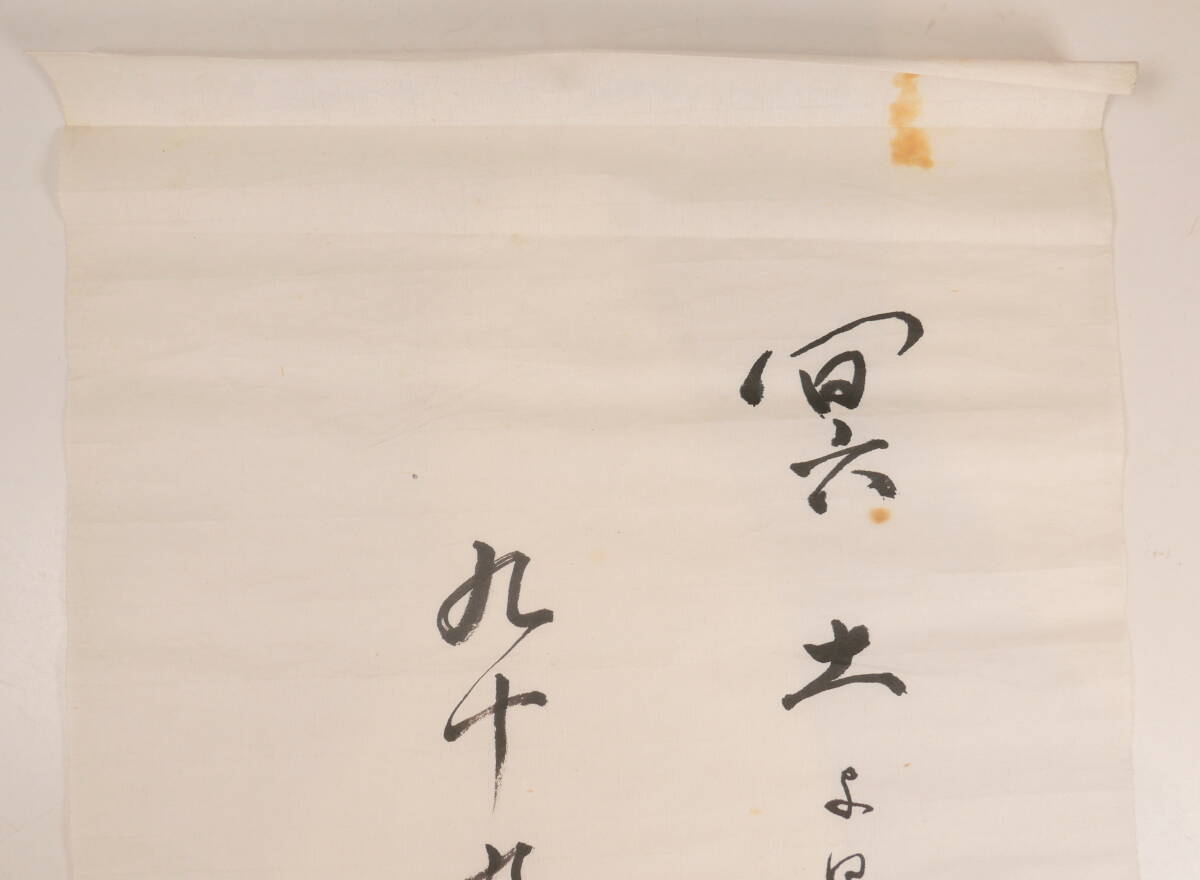 冥土よ
九十九